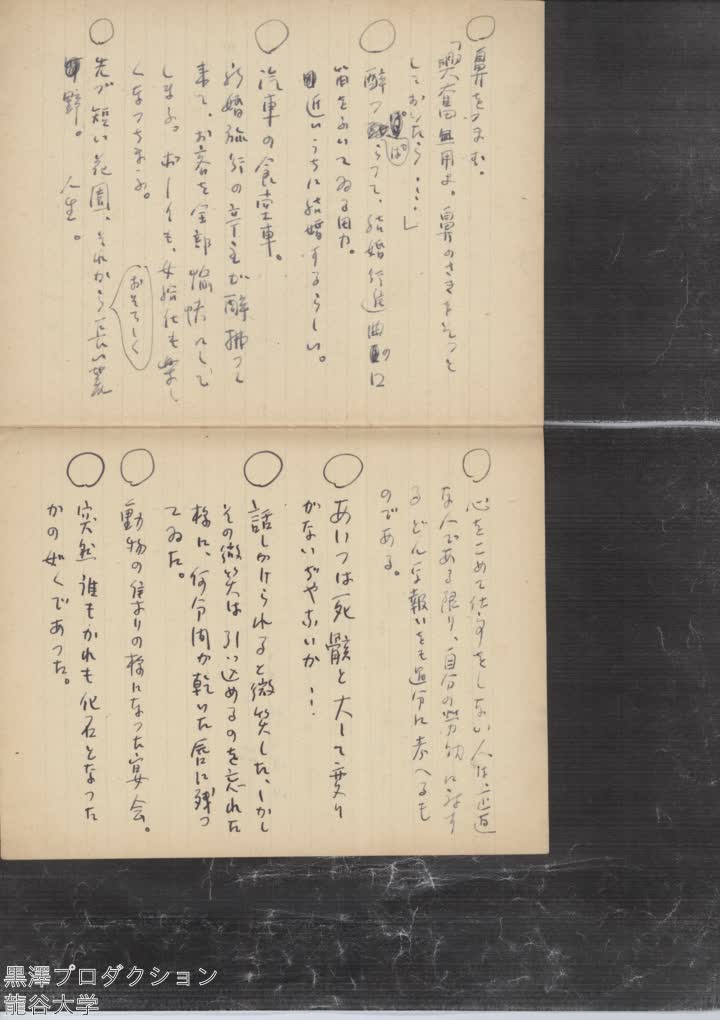 ○ 鼻をつまむ。
「興奮無用よ。鼻のさきをそつと
しておいたら・・・・」
○ 酔つぱらつて、結婚行進曲に
笛をふいてゐる男。
近いうちに結婚するらしい。
○ 汽車の食堂車。
新婚旅行の亭主が酔拂つて
来て、お客を全部愉快にして
しまふ。ボーイも、女給仕も楽し
くなつちまふ。
○ 先づ短い花園、それからおそろしく長い荒
野。 人生。
○ 心をこめて仕事をしない人は、正直
な人である限り、自分の労効に対す
る どんな報いをも過分に考へるも
のである。
○ あいつは死骸と大して変り
がないぢやないか・・・
○ 話しかけられると微笑した、しかし
その微笑は引つ込めるのを忘れた
様に、何分間か乾いた唇に残つ
てゐた。
○ 動物の集まりの様になつた宴会。
○ 突然 誰もかれも化石となつた
かの如くであつた。
黒澤プロダクション
龍谷大学